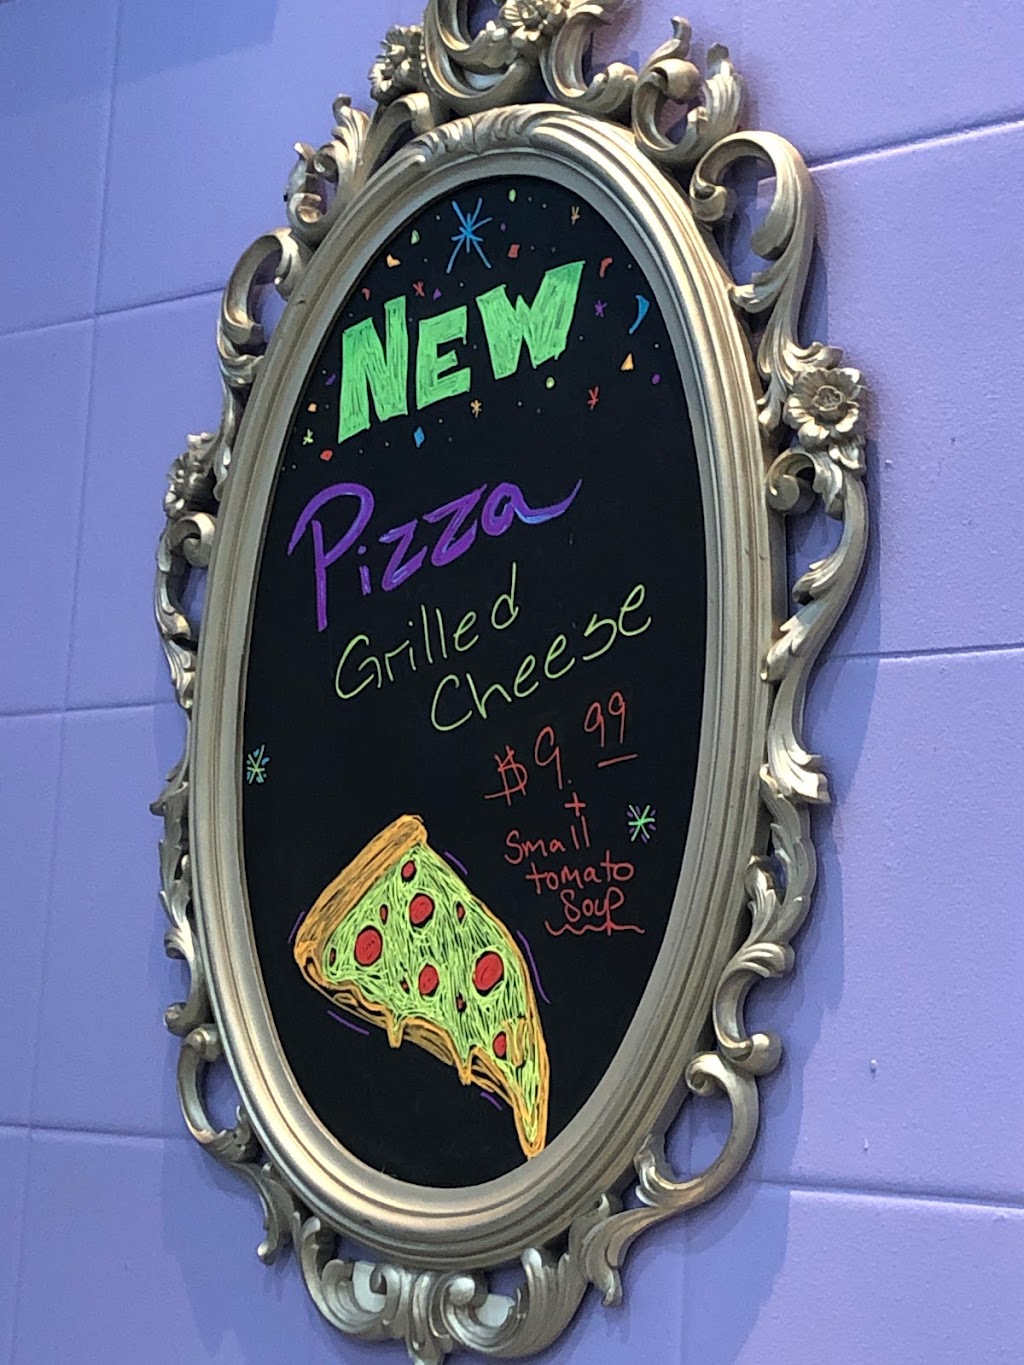 NEW
Pizza
Grilled
Cheese
$9.99
+
Small
tomato
Soup